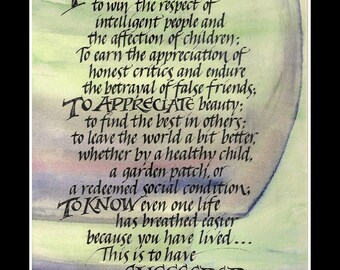 to win the respect of
intelligent people and
the affection of children;
To earn the appreciation of
honest critics and endure
the betrayal of false friends;
TO APPRECIATE beauty;
to find the best in others;
to leave the world a bit better,
whether by a healthy child,
a garden patch, or
a redeemed social condition;
TO KNOW even one life
has breathed easier
because you have lived...
This is to have